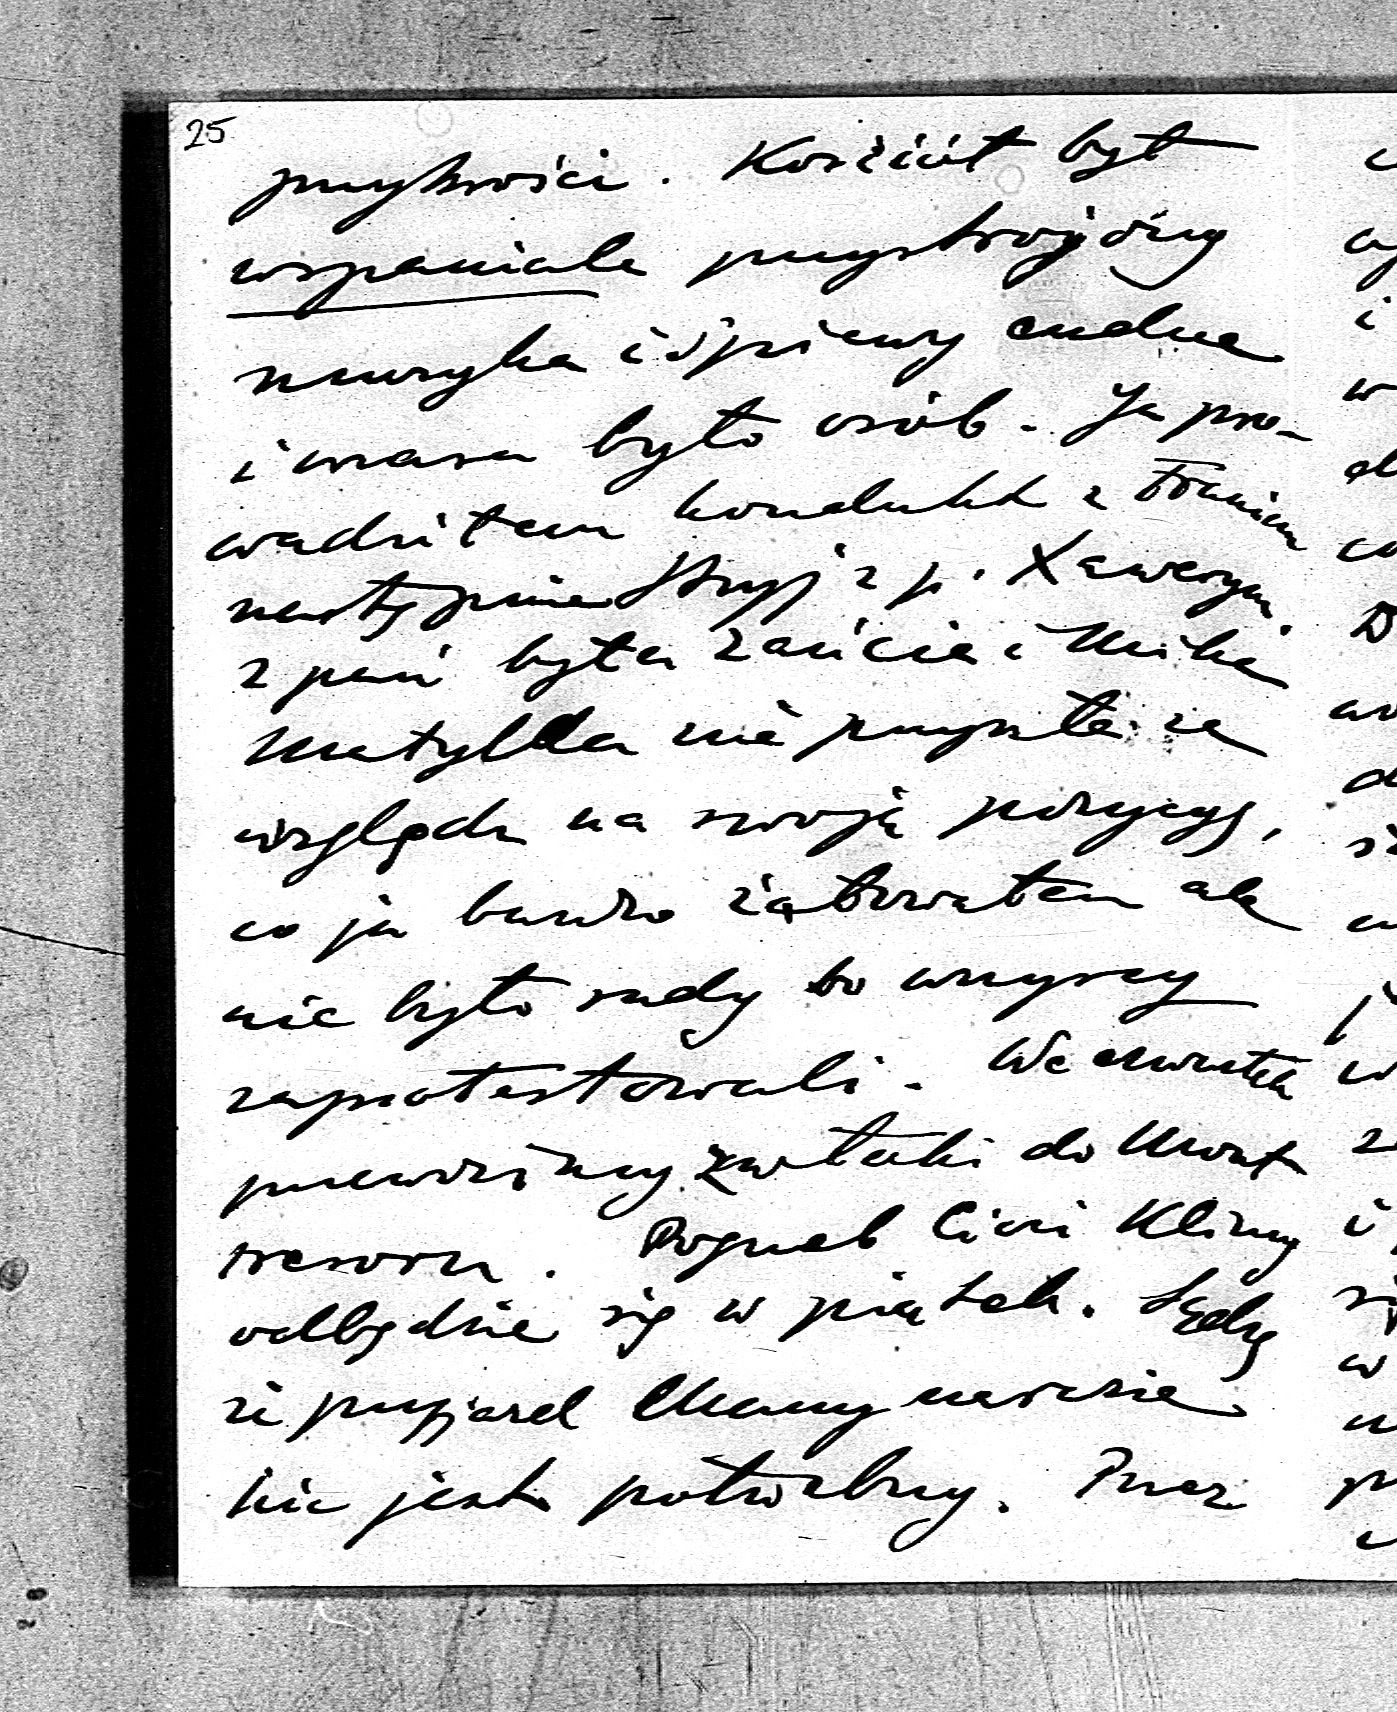 25
przykrości. Kościół był
wspaniale przystrojony
muzyka i śpiewy cudne
i masa było osób. Ja pro-
wadziłem kondukt z Franiem
następnie Stryj z p. Xawerym.
z pań była Zańcia i Mika
Matylda nie przyszła ze
względu na swoją pozycyę,
co ja bardzo żałowałem ale
nie było rady bo wszyscy
zaprotestowali. We czwartek
przewozimy zwłoki do Mont
tresoru. Pogrzeb Cioci Klimy
odbędzie się w piątek. Sądzę
że przyjazd Mamy narazie
nie jest potrzebny. Przez